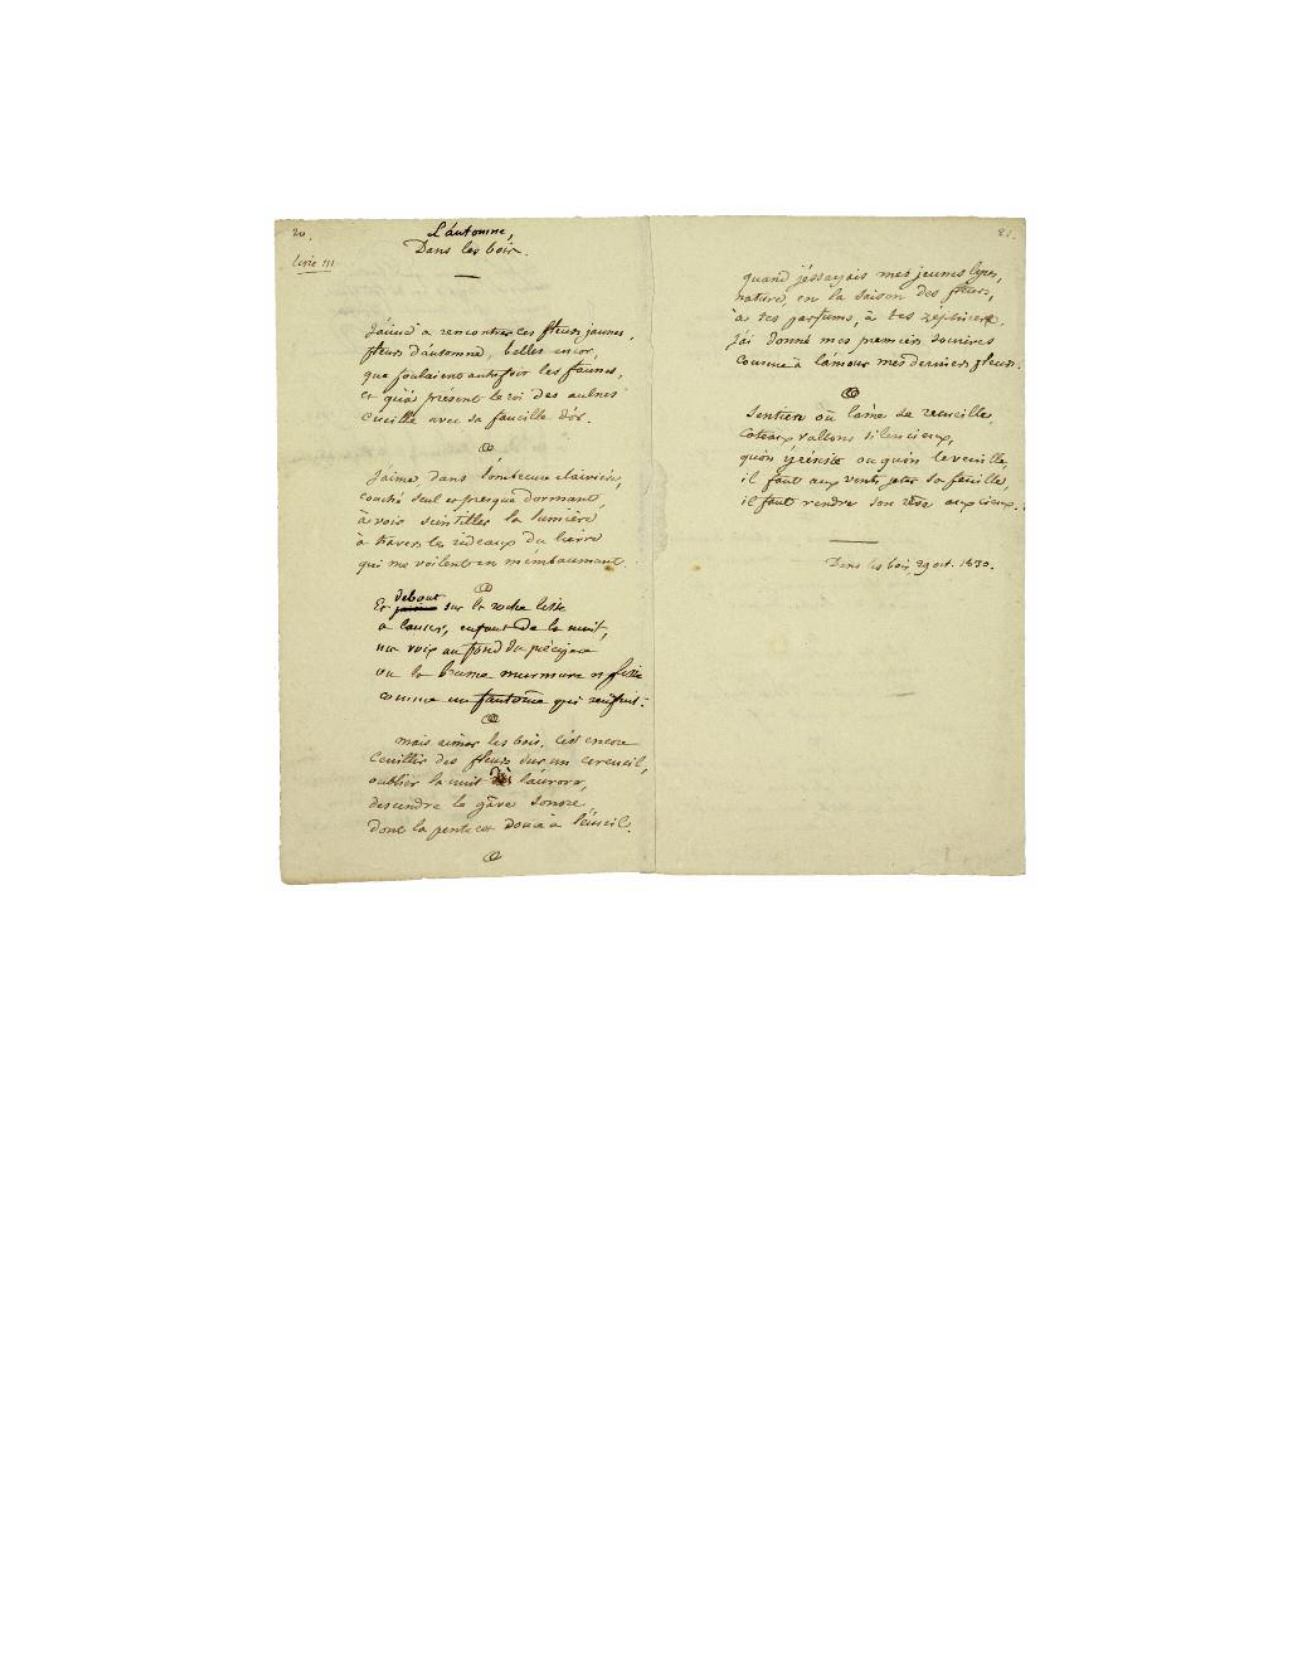 20.
L'automne,
Dans les bois.
livre III
J'aime à rencontrer ces fleurs jaunes,
fleurs d'automne, belles encor,
que foulaient autrefois les faunes,
et qu'à présent le roi des aulnes
cueille avec sa faucille d'or.
J'aime, dans l'ombreuse clairière,
couché seul et presque dormant,
à voir scintiller la lumière
à travers les rideaux du lierre
qui me voilent en m'embaumant.
debout
Et sur la roche lisse
à lancer, enfant de la nuit,
ma voix au fond du précipice
où la brume murmure et glisse
comme un fantôme qui s'enfuit.
mais aimer les bois, c'est encore
cueillir des fleurs sur un cercueil,
oublier la nuit l'aurore,
descendre le gâve sonore,
dont la pente est douce à l'écueil.
21.
quand j'essayais mes jeunes lyres,
nature, en la saison des fleurs,
à tes parfums, à tes zéphires,
j'ai donné mes premiers sourires
comme à l'amour mes derniers pleurs.
Sentiers où l'âme se recueille,
coteaux vallons silencieux,
qu'on
il faut aux vents jeter sa feuille,
il faut rendre son rêve aux cieux.
Dans les bois, 29 oct. 1830.